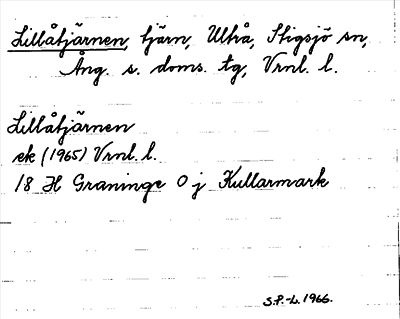 Lillåtjärnen, tjärn, Utbå, Stigsjö sn,
Ång. s. doms. tg, Vrnl. l.
Lillåtjärnen
ek (1965) Vrnl. l.
18 H Graninge 0 j Kullarmark
S.P.-L. 1966.